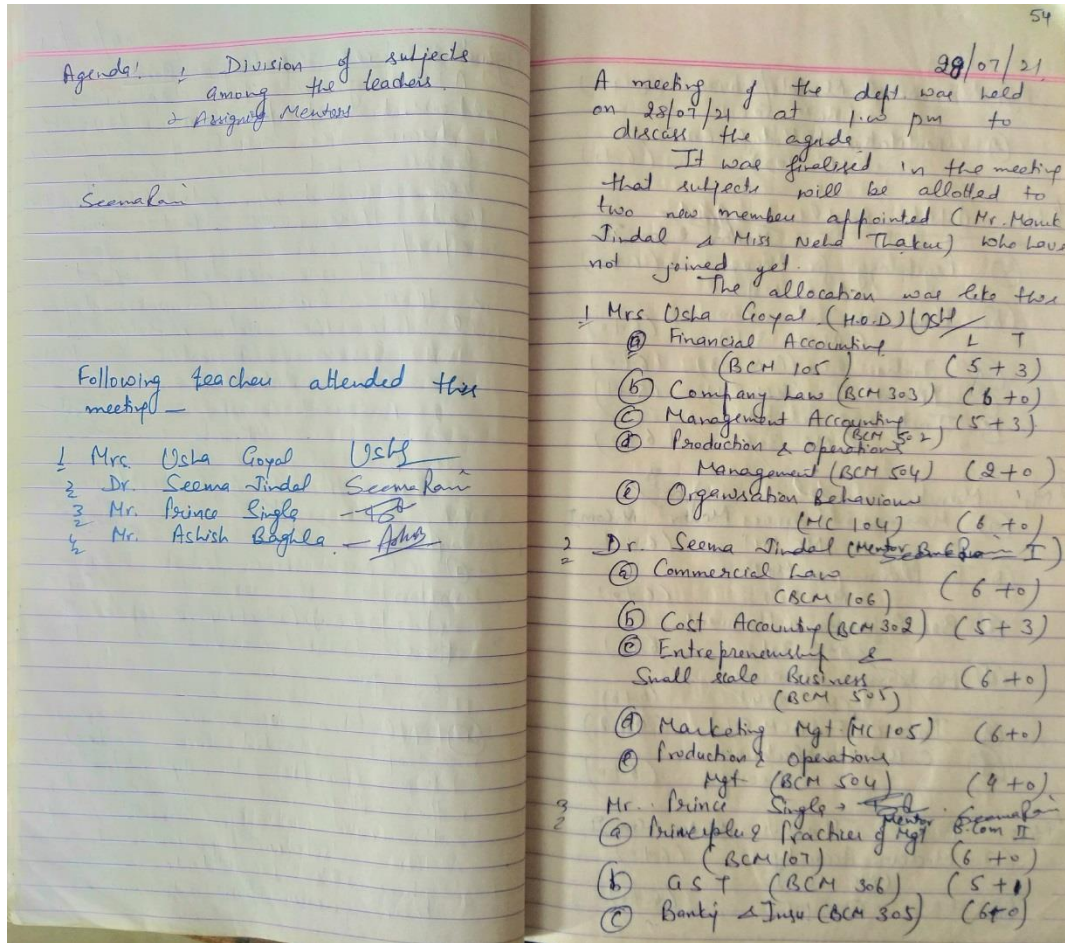 Agenda! 1 Division of subjects
among the teachers.
2 Assigning Mentors
SeemaRani
Following teacher attended this
meeting —
1 Mrs. Usha Goyal Usha
2 Dr. Seema Jindal Seema Rani
3 Mr. Prince Singla
4 Mr. Ashish Baghla — Ashish
54
28/07/21.
A meeting of the deptt was held
on 28/07/21 at 1.00 pm to
discuss the agenda
It was finalised in the meeting
that subjects will be allotted to
two new member appointed (Mr. Monik
Jindal & Miss Neha Thakur) who have
not joined yet.
The allocation was like this
1 Mrs. Usha Goyal (H.O.D) Usha
L T
(a) Financial Accounting
(BCM 105) (5+3)
(b) Company Law (BCM 303) (6+0)
(c) Management Accounting (5+3)
(BCM 502)
(d) Production & Operations
Management (BCM 504) (2+0)
(e) Organisation Behaviour
(MC 104) (6+0)
2 Dr. Seema Jindal (Mentor I)
(a) Commercial Law
(BCM 106) (6+0)
(b) Cost Accounting (BCM 302) (5+3)
(c) Entrepreneurship &
Small scale Business (6+0)
(BCM 505)
(d) Marketing Mgt (MC 105) (6+0)
(e) Production & Operations
Mgt (BCM 504) (4+0)
3 Mr. Prince Singla SeemaRani
Mentor B.Com II
(a) Principles & Practices of Mgt
(BCM 107) (6+0)
(b) GST (BCM 306) (5+1)
(c) Banky & Insu (BCM 305) (6+0)